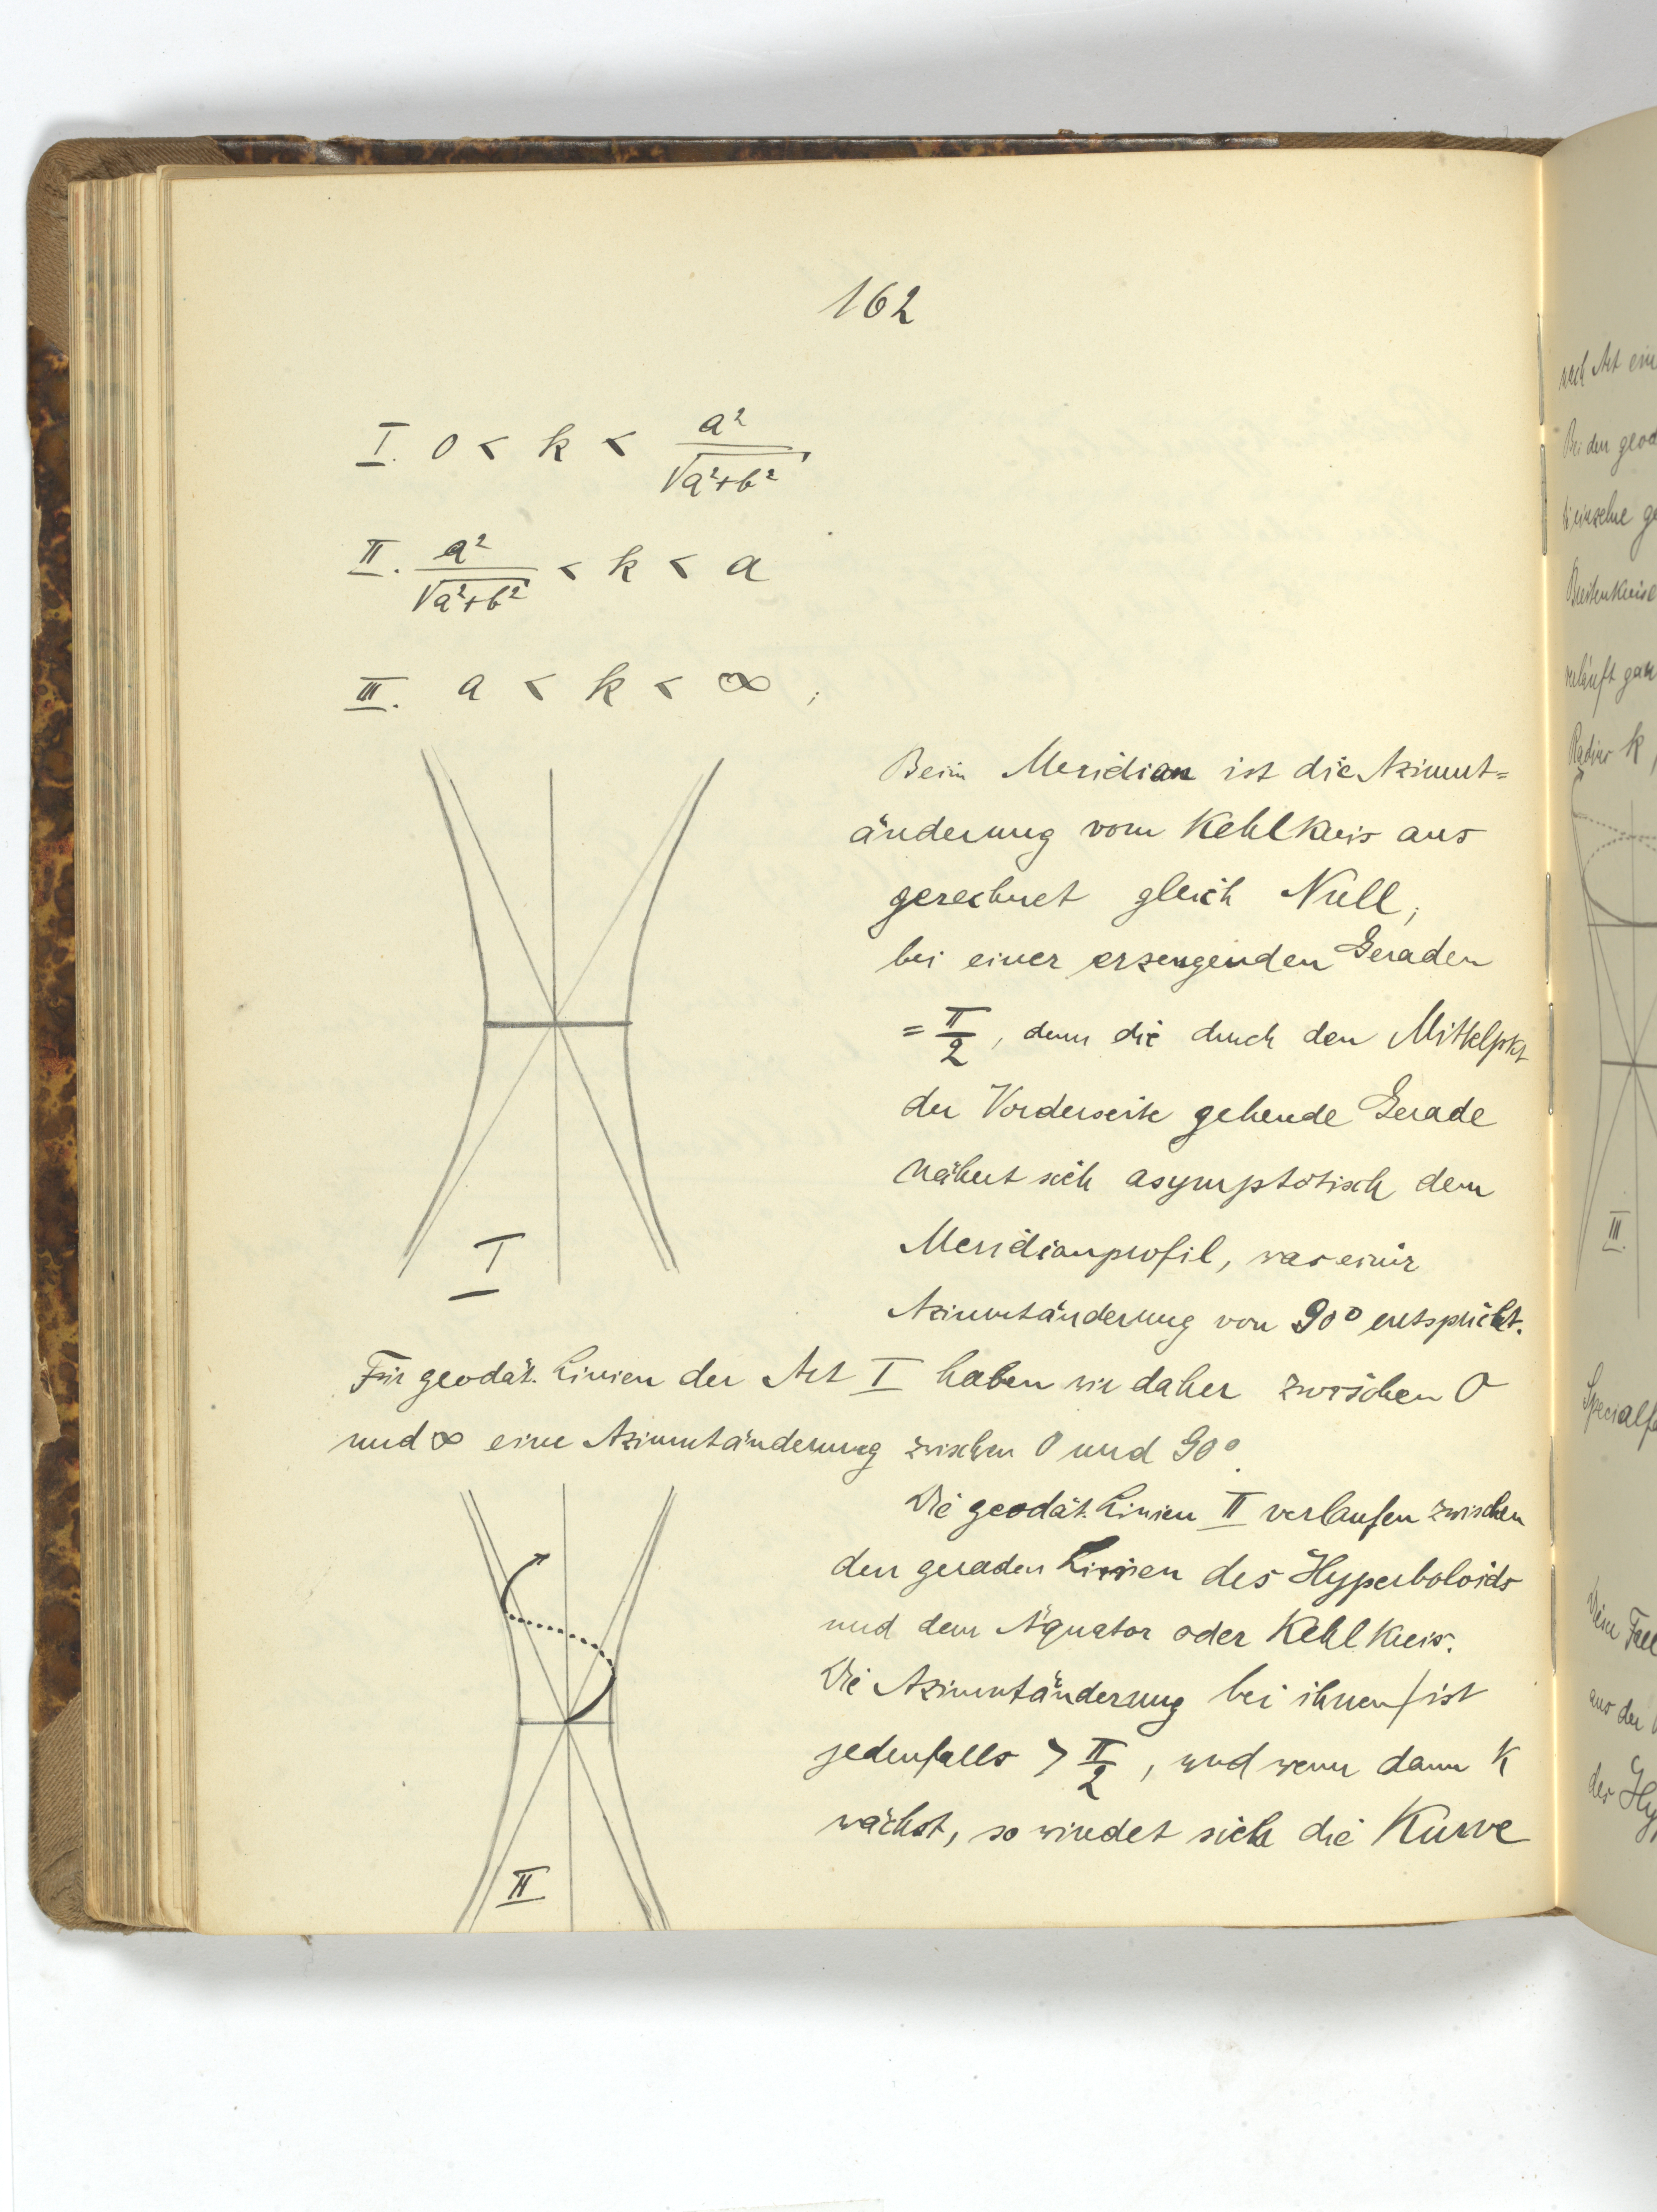 162
I. 0 < k < a²/√(a²+b²)
II. a²/√(a²+b²) < k < a
III. a < k < ∞ ;
Beim Meridian ist die Azimut=
änderung vom Kehlkreis aus
gerechnet gleich Null;
bei einer erzeugenden Geraden
= π/2, denn die durch den Mittelpkt
der Vorderseite gehende Gerade
nähert sich asymptotisch dem
Meridianprofil, was einer
Azimutänderung von 90° entspricht.
I
Für geodät. Linien der Art I haben wir daher zwischen 0
und ∞ eine Azimutänderung zwischen 0 und 90°.
Die geodät. Linien II verlaufen zwischen
den geraden Linien des Hyperboloids
und dem Äquator oder Kehlkreis.
Die Azimutänderung bei ihnen ist
jedenfalls > π/2, und wenn dann k
wächst, so windet sich die Kurve
II
nach Art
Bei den
Breitenkreise
verläuft
Radius k,
III.
aus der